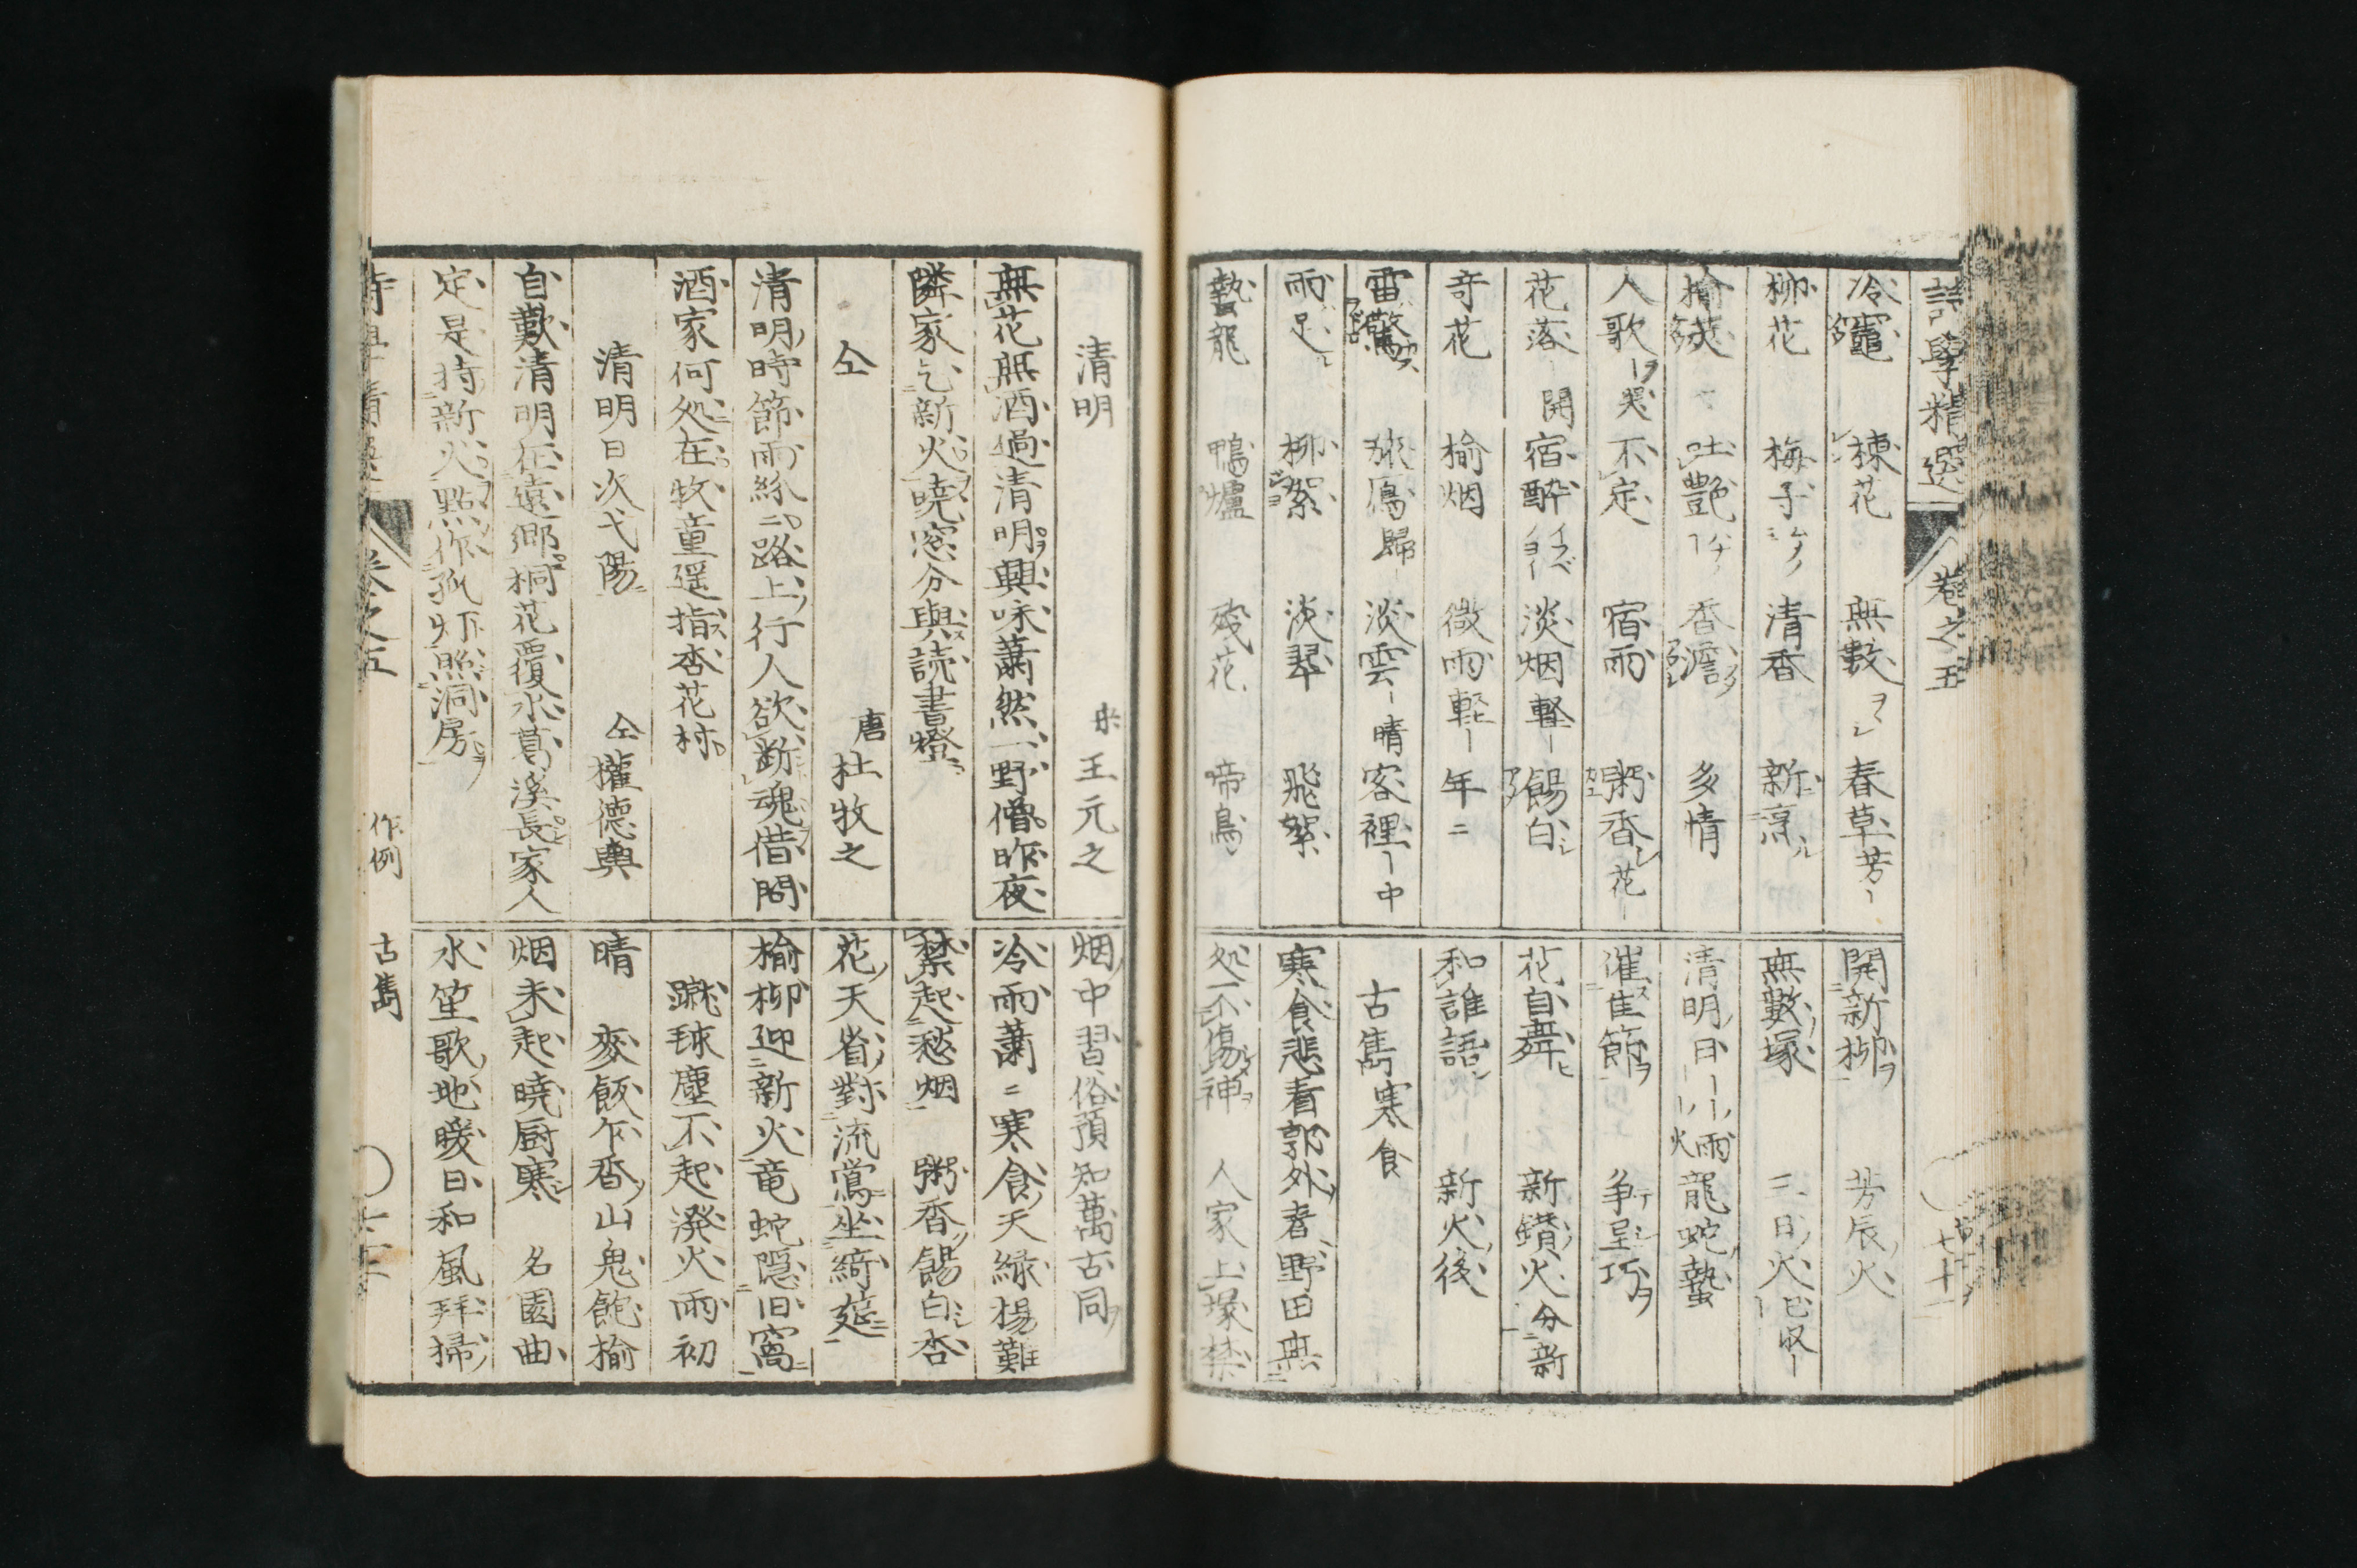 詩學精選 卷之五
冷竈 棟花 無數 春草芳
柳花 梅子 清香 新烹
榆莢 吐艷 香澹 多情
人歌哭 不定 宿雨 粥香花
花落開 宿醉 淡烟軽 餳白
奇花 榆烟 微雨軽 年〻
雷驚 旅鴈歸 淡雲晴 客裡中
雨足 柳絮 淡翠 飛絮
蟄龍 鴨爐 殘花 啼鳥
開新柳 芳辰火
無數塚 三日火已収
清明日雨火 龍蛇蟄
催佳節 争呈巧
花自舞 新鑚火分新
和誰語 新火後
古雋寒食
寒食悲看郭外春野田無
処不傷神 人家上塚禁
七十一
清明 宋王元之
無花無酒過清明興味蕭然一野僧昨夜
隣家乞新火曉窓分與読書燈
仝 唐杜牧之
清明時節雨絲〻路上行人欲断魂借問
酒家何処在牧童遥指杏花村
清明日次弋陽 仝權德輿
自歎清明在遠郷桐花覆水葛溪長家人
定是持新火點作孤灯照洞房
烟中習俗預知萬古同
冷雨蕭〻寒食天緑楊難
禁起愁烟 粥香餳白杏
花天省對流鶯坐綺莚
榆柳迎新火竜蛇隠旧窩
蹴球塵不起溌火雨初
晴 麥飯乍香山鬼飽榆
烟未起曉厨寒 名園曲
水笙歌地暖日和風拝掃
卷之五 作例 古雋